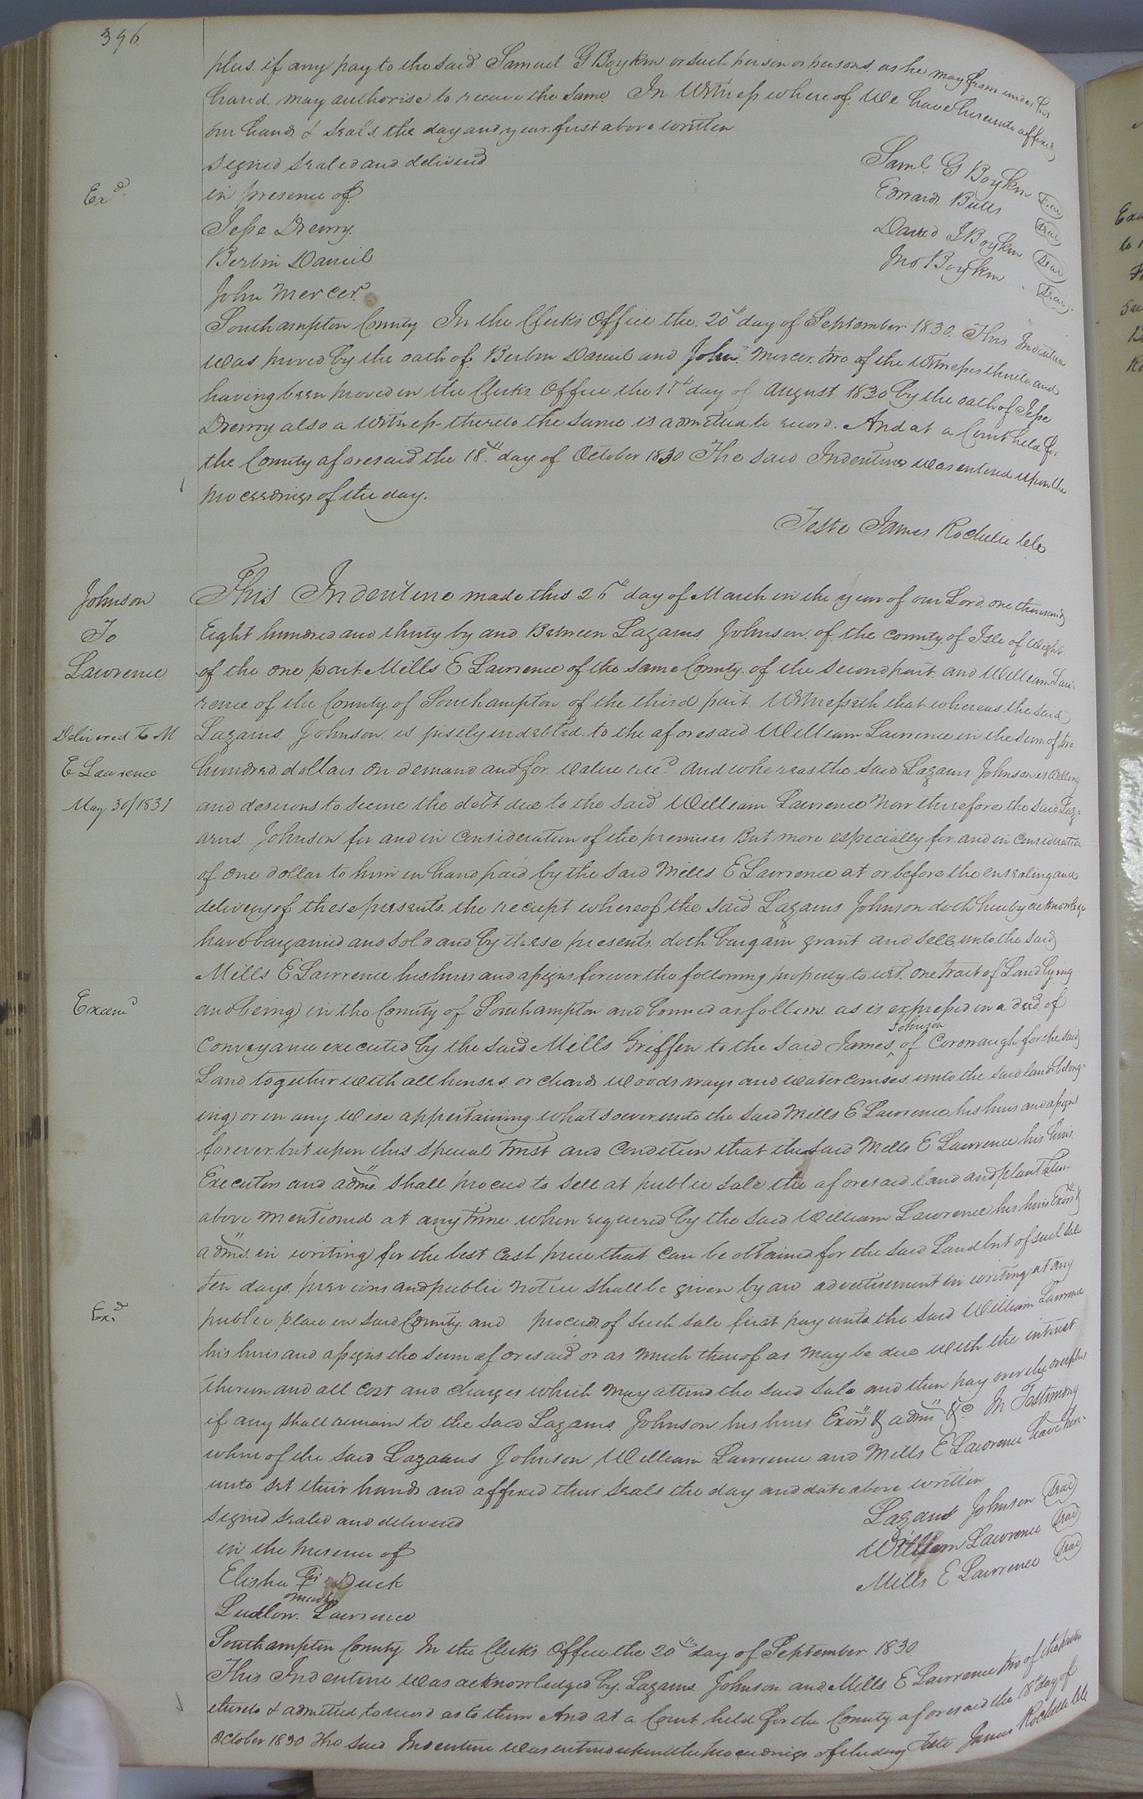 396
plus if any pay to the said Samuel G Boykin or such person or persons as he may from under his
hand may authorise to receive the same In Witness whereof We have hereunto affixed
our hands & seals the day and year first above written
Signed sealed and deliverd
in presence of
Jesse Drewry
Berbin Daniel
John Mercer
Saml. G Boykin Seal
Edward Butts Seal
David J Boykin Seal
Jno Boykin Seal
Exd.
Southampton County In the Clerks Office the 20th day of September 1830. This Indenture
was proved by the oath of Berbin Daniel and John Mercer two of the Witnesses thereto and
having been proved in the Clerks Office the 17th day of August 1830 by the oath of Jesse
Drewry also a Witness thereto the same is admitted to record. And at a Court held for
the County aforesaid the 18th. day of October 1830 The said Indenture was entered upon the
proceedings of the day.
Teste James Rochelle Clk
Johnson
To
Lawrence
Delivered to M
E Lawrence
May 30/1831
This Indenture made this 26th day of March in the year of our Lord one thousand
Eight hundred and thirty by and Between Lazarus Johnson of the county of Isle of Wight
of the one part Mills E Lawrence of the same County of the second part and William Law-
rence of the County of Southampton of the third part Witnesseth that whereas the said
Lazarus Johnson is justly indebted to the aforesaid William Lawrence in the sum of two
hundred dollars on demand and for value recd. and whereas the said Lazarus Johnson is willing
and desirous to secure the debt due to the said William Lawrence Now therefore the said Laz-
arus Johnson for and in consideration of the premises But more especially for and in consideration
of one dollar to him in hand paid by the said Mills E Lawrence at or before the ensealing and
delivery of these presents the receipt whereof the said Lazarus Johnson doth hereby acknowledge
have bargained and sold and by these presents doth bargain grant and sell unto the said
Mills E Lawrence his heirs and assigns forever the following property to wit. One tract of Land lying
Examd
and being in the County of Southampton and bound as follows as is expressed in a deed of
conveyance executed by the said Mills Griffen to the said James Johnson of Coronaugh for the said
Land together with all houses, orchards woods ways and water courses unto the said land belong-
ing or in any wise appertaining whatsoever unto the said Mills E Lawrence his heirs and assigns
forever but upon this special trust and condition that the said Mills E Lawrence his heirs
Executors and adms shall proceed to sell at public sale the aforesaid land and plantation
above mentioned at any time when required by the said William Lawrence his heirs Exors &
adms. in writing for the best cash price that can be obtained for the said Land but of such sale
ten days previous and public notice shall be given by an advertisement in writing at any
Exd.
public place in said County and proceeds of such sale first pay unto the said William Lawrence
his heirs and assigns the sum aforesaid or as much thereof as may be due with the interest
thereon and all cost and charges which may attend the said sale and then pay over the overplus
if any shall remain to the said Lazarus Johnson his heirs Exors & adms &c In Testimony
where of the said Lazarus Johnson William Lawrence and Mills E Lawrence have here-
unto set their hands and affixed their seals the day and date above written
Signed sealed and delivered
in the presence of
Elisha his Duck
mark
Ludlow. Lawrence
Lazarus Johnson Seal
William Lawrence Seal
Mills E Lawrence Seal
Southampton County In the Clerks Office the 20th day of September 1830
This Indenture was acknowledged by Lazarus Johnson and Mills E Lawrence two of the parties
thereto & admitted to record as to them And at a Court held for the County aforesaid the 18 day of
October 1830 The said Indenture was entered upon the proceedings of the day Teste James Rochelle Clk